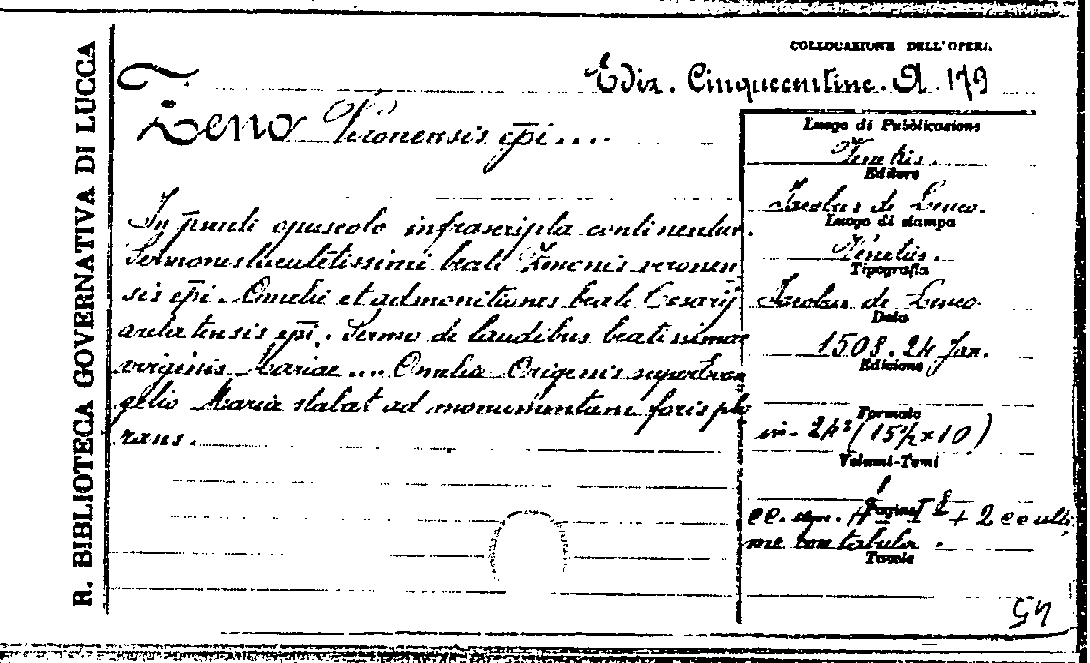 R. BIBLIOTECA GOVERNATIVA DI LUCCA
COLLOCAZIONE DELL'OPERA
Ediz. Cinquecentine. A. 179
Zeno Veronensis epi....
In pnnti opuscolo infrascripta continentur.
Sermones luculetissimi beati Zenonis veronen
sis epi. Omelie et admonitiones beati Cesarij
arelatensis epi. Sermo de laudibus beatissimae
virginis Mariae .... Omelia Origenis super Evan
gelio Maria stabat ad monumentum foris plo
rans.
Luogo di Pubblicazione
Venetiis.
Editore
Jacobus de Leuco.
Luogo di stampa
Venetiis.
Tipografia
Jacobus de Leuco
Data
1508. 24 Jan.
Edizione
Formato
in-24° (15½ x 10)
Volumi-Tomi
1
Pagine
cc. segn. + 2 cc ulti
me con tabula.
Tavole
54